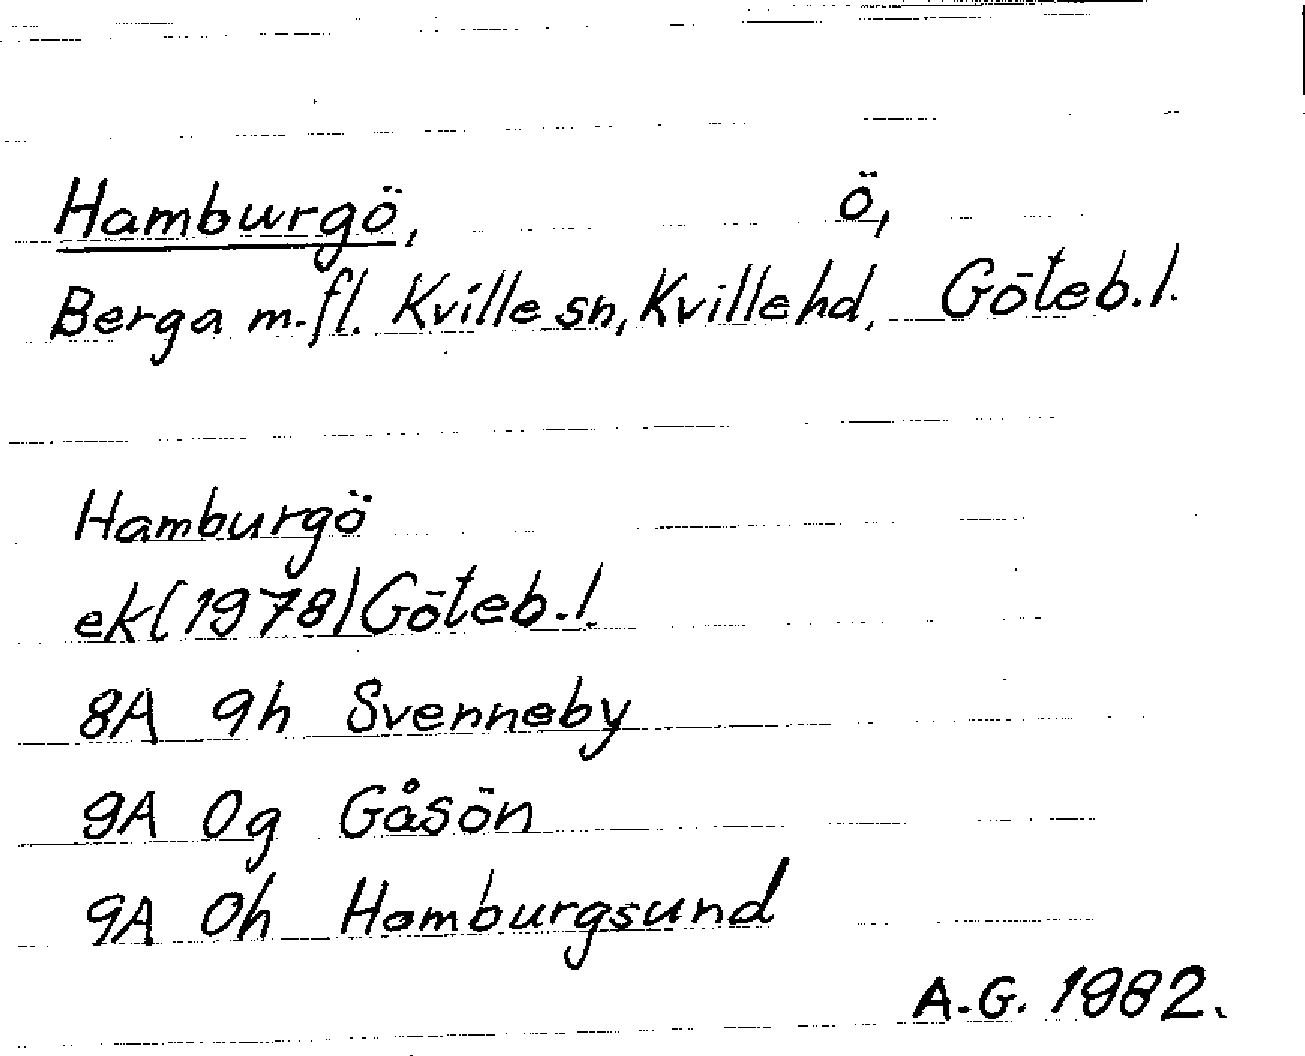 Hamburgö, ö,
Berga m.fl. Kville sn, Kville hd, Göteb.l.
Hamburgö
ek(1978)Göteb.l.
8A 9h Svenneby
9A 0g Gåsön
9A 0h Hamburgsund
A.G. 1982.